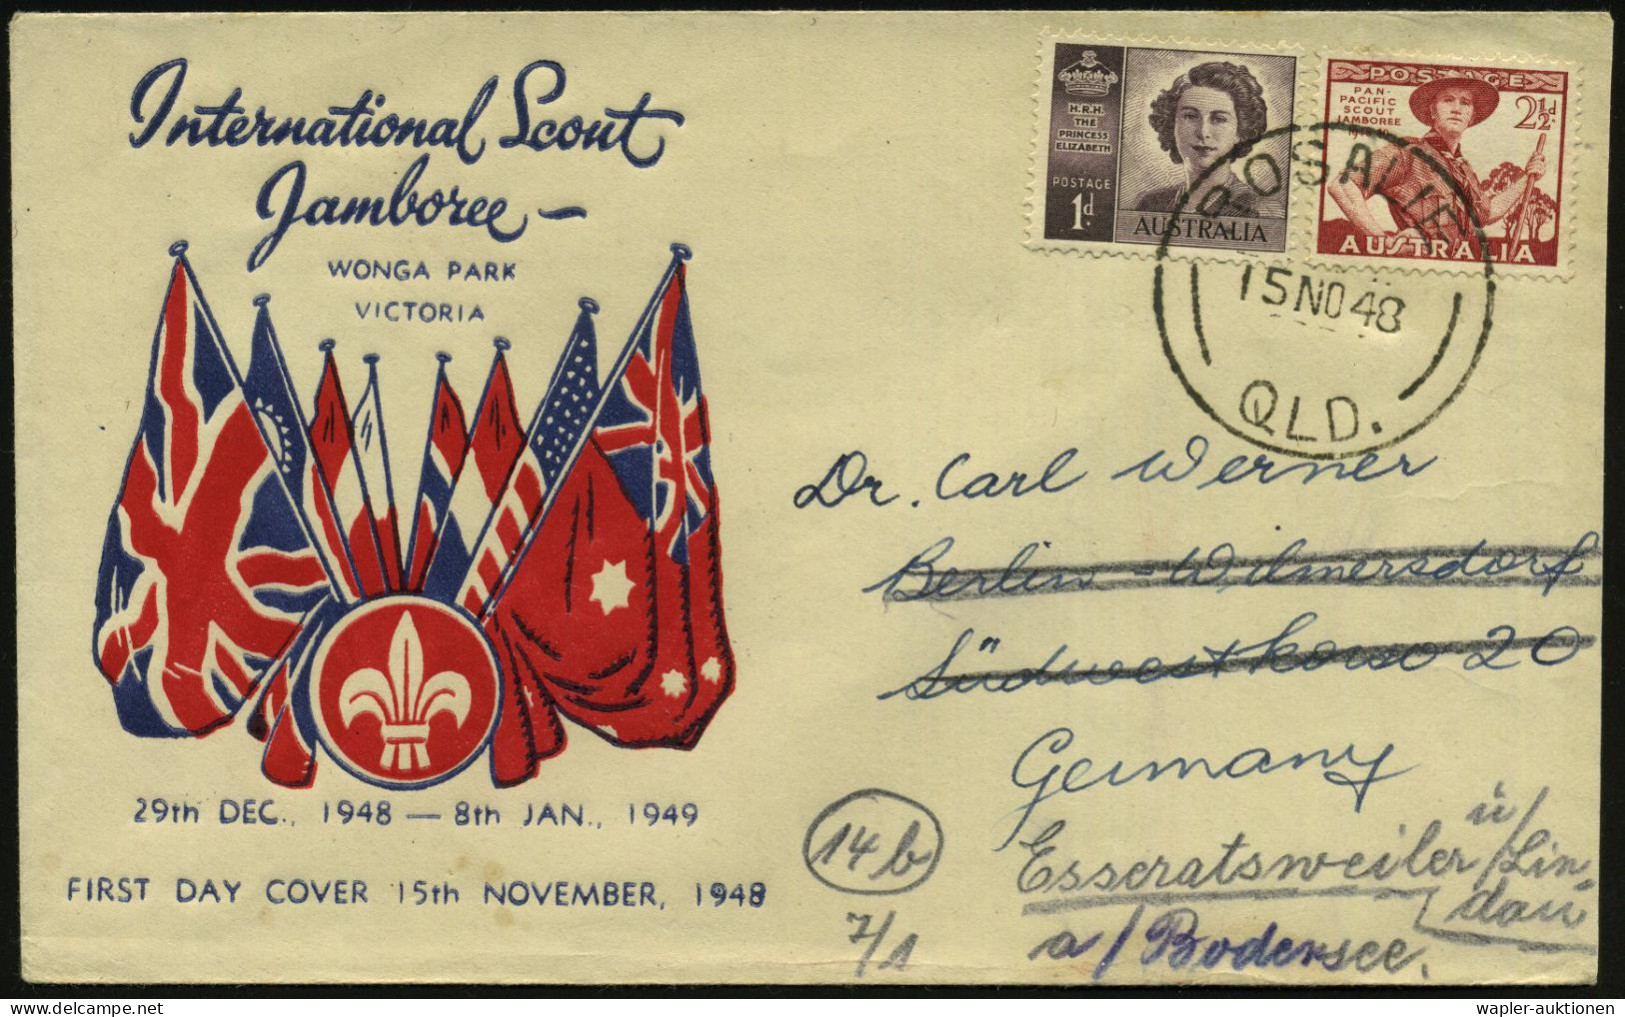 International Scout
Jamboree –
WONGA PARK
VICTORIA
29th DEC., 1948 — 8th JAN., 1949
FIRST DAY COVER 15th NOVEMBER, 1948
H.R.H.
THE
PRINCESS
ELIZABETH
POSTAGE
1d.
AUSTRALIA
POSTAGE
PAN-
PACIFIC
SCOUT
JAMBOREE
2½d.
AUSTRALIA
ROSALIE
15 NO 48
QLD.
Dr. Carl Werner
Berlin-Wilmersdorf
Südwestkorso 20
Germany
14b
7/1
Esseratsweiler ü/Lin-
dau
a/Bodensee.
wapler-auktionen